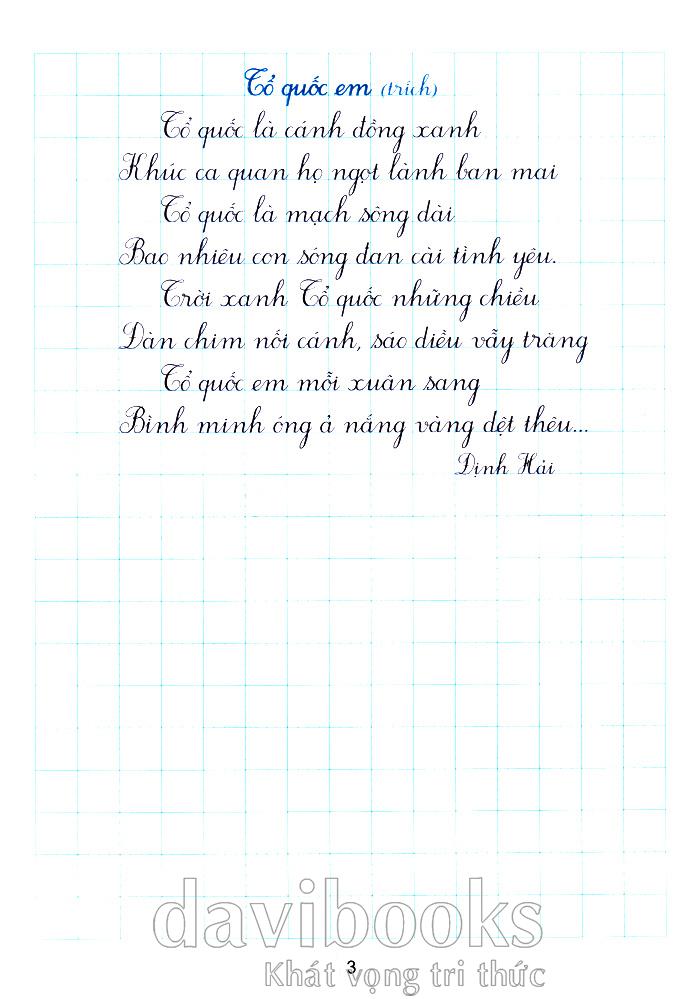 Tổ quốc em (trích)
Tổ quốc là cánh đồng xanh
Khúc ca quan họ ngọt lành ban mai
Tổ quốc là mạch sông dài
Bao nhiêu con sóng đan cài tình yêu.
Trời xanh Tổ quốc những chiều
Đàn chim nối cánh, sáo diều vẫy trăng
Tổ quốc em mỗi xuân sang
Bình minh óng ả nắng vàng dệt thêu...
Định Hải
davibooks
Khát vọng tri thức
3